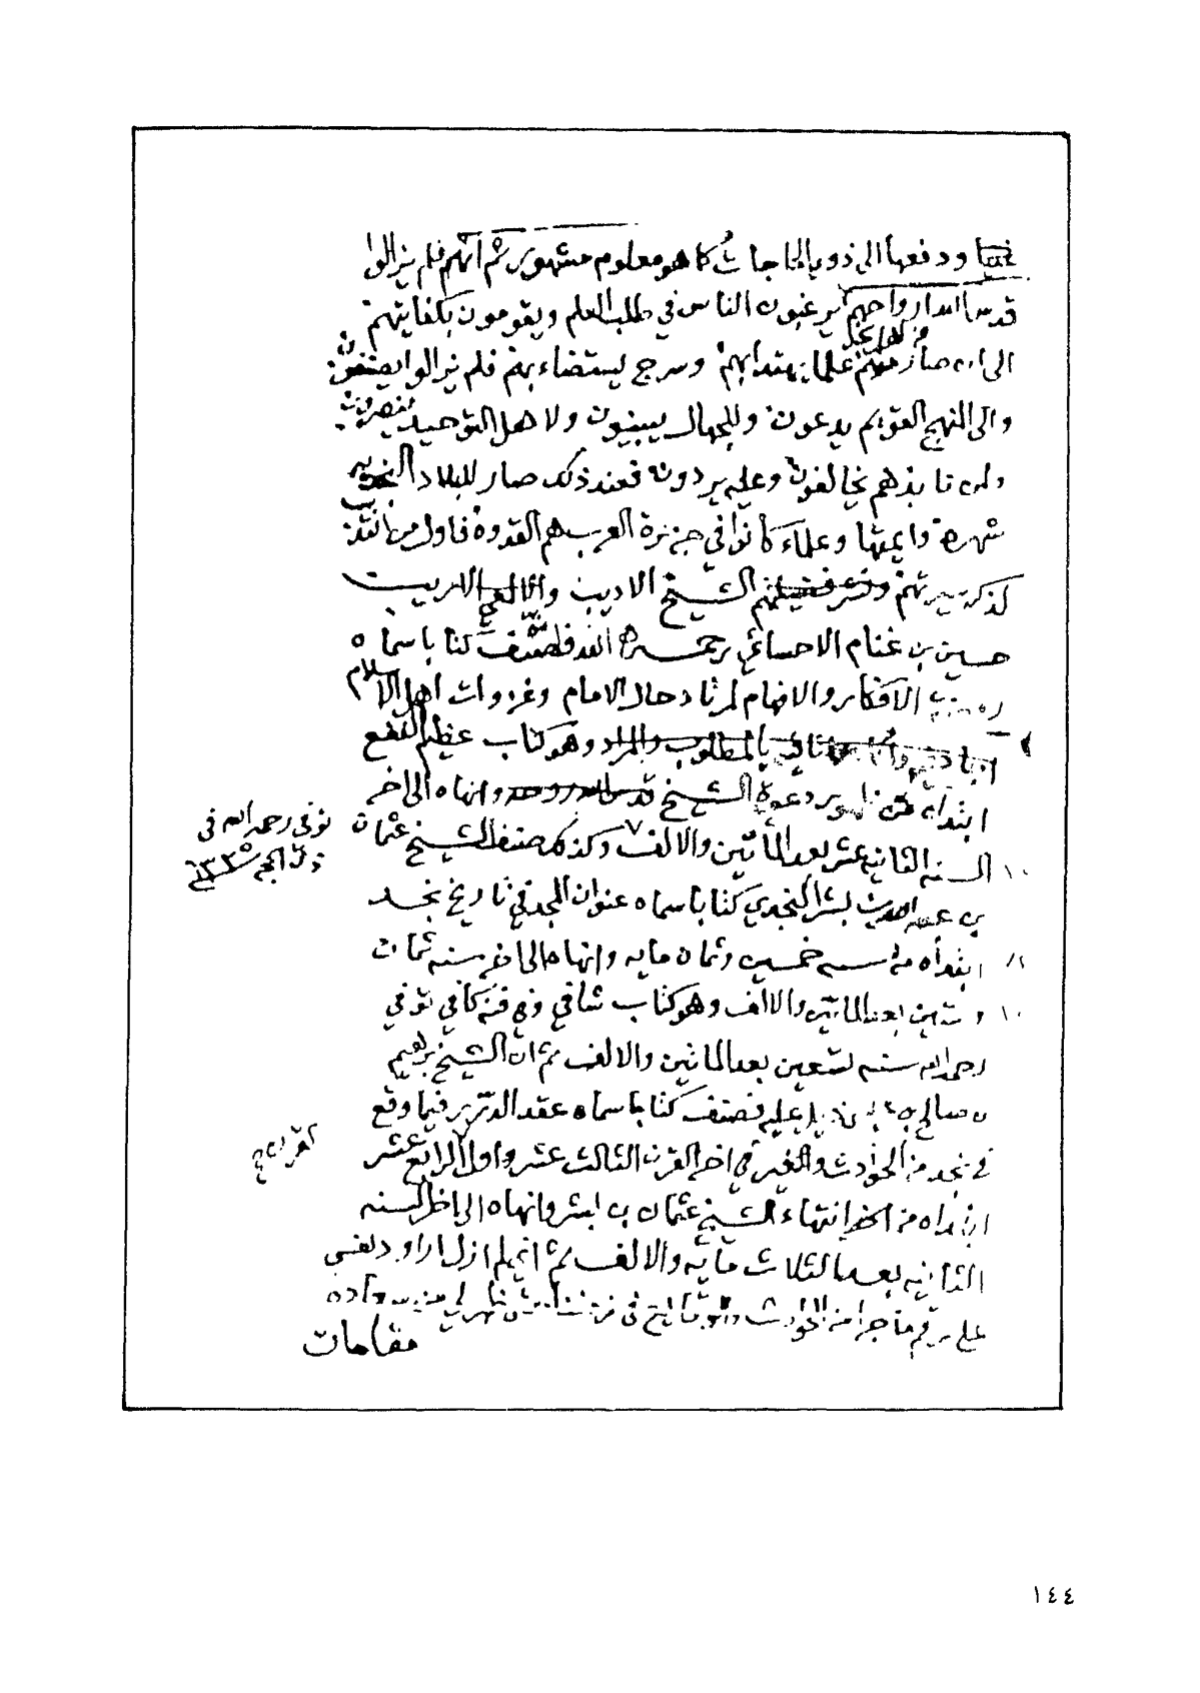 ودفعها الى ذوي الحاجات كما هو معلوم مشهور ثم انهم فلم يزالوا
قدس الله ارواحهم يرغبون الناس في طلب العلم ويقومون بكفايتهم
من اهل نجد
الى ان صار منهم علما يهتدا بهم وسرج يستضاء بهم فلم يزالوا يصنفون
والى النهج القويم يدعون وللجهال يبينون ولاهل التوحيد ينصرون
ولمن نابذهم يخالفون وعليه يردون فعند ذلك صار للبلاد النجديه
شهرة وايمتها وعلماء كانوا في جزيرة العرب هم القدوة فاول من
كذكر سيرتهم ونشر فضيلتهم الشيخ الاديب الاريب
حسين بن غنام الاحسائي رحمه الله فصنف كتابا سماه
روضة الافكار والافهام لمرتاد حال الامام وغزوات اهل الاسلام
بالمطلوب والمراد وهو كتاب عظيم النفع
ابتداه من ظهور دعوة الشيخ قدس الله روحه وانهاه الى اخر
السنه الثانيه عشر بعد المأتين والالف وكذلك صنف الشيخ عثمان
توفي رحمه الله في
ذي الحجه
بن عبد الله بن بشر النجدي كتابا سماه عنوان المجد في تاريخ نجد
ابتداه من سنه خمسين وثمان مايه وانهاه الى اخر سنه ثمان
وستين بعد الماتين والالف وهو كتاب شافي وفي فنه كافي توفي
رحمه الله سنه تسعين بعد الماتين والالف ثم ان الشيخ ابراهيم
بن صالح بن عيسى ذيل عليه فصنف كتابا سماه عقد الدرر فيما وقع
في نجد من الحوادث والغير في اخر القرن الثالث عشر واول الرابع عشر
ابتداه من اخر انتهاء الشيخ عثمان بن بشر وانهاه الى اخر السنه
الثانيه بعد الثلاث مايه والالف ثم اني لم ازل اراود نفسي
على رقم ما جرا من الحوادث والوقايع في
مقامات
١٤٤